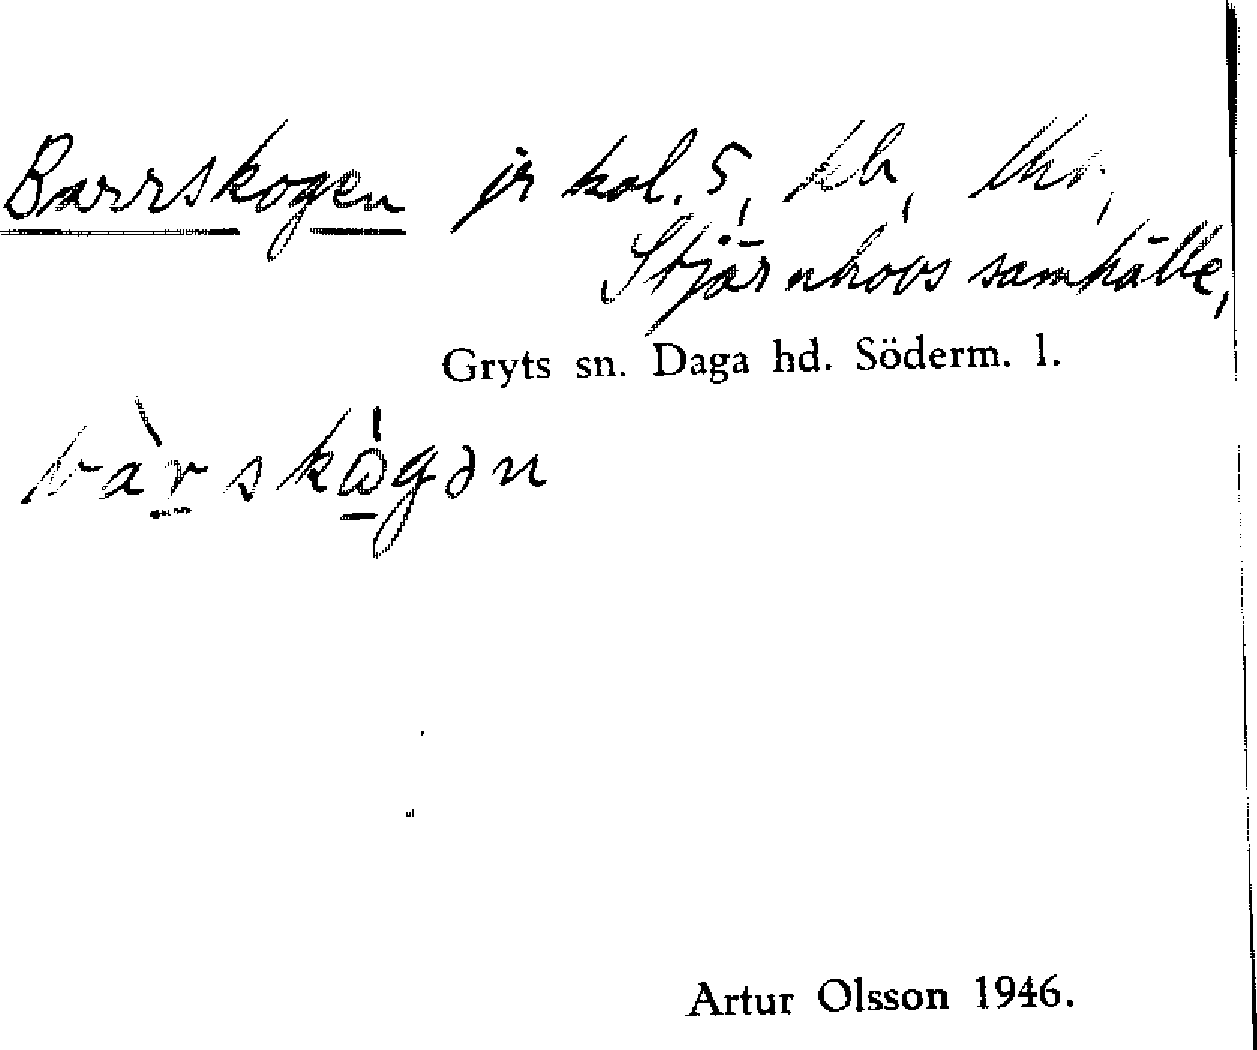 Barrskogen jr kol. 5, kh, lhr,
Stjärnhovs samhälle,
Gryts sn. Daga hd. Söderm. l.
bàrskɷ̀gən
Artur Olsson 1946.